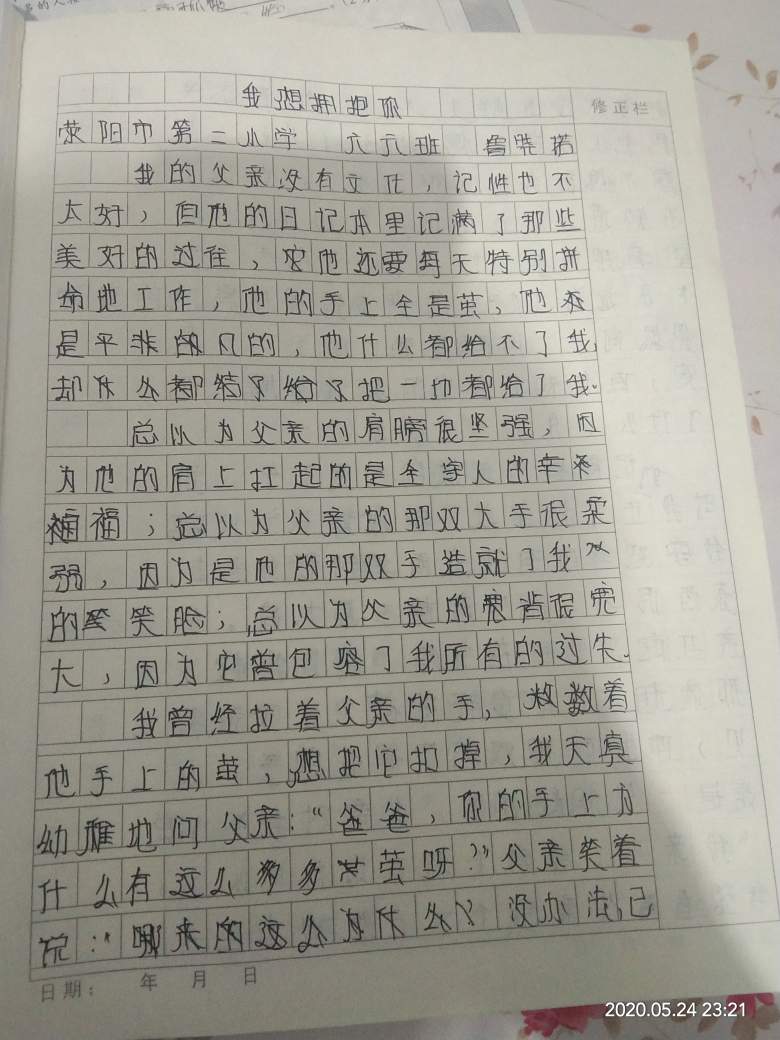 我想拥抱你
修正栏
荥阳市第二小学 六六班 鲁
我的父亲没有文化，记性也不
太好，但他的日记本里记满了那些
美好的过往，他还要每天特别拼
命地工作，他的手上全是茧，他
是平非凡的，他什么都给不了我，
却什么都给了把一切都给了我.
总以为父亲的肩膀很坚强，因
为他的肩上扛起的是全家人的幸
福；总以为父亲的那双大手很柔
弱，因为是他的那双手造就了我
的笑脸；总以为父亲的背很宽
大，因为它曾包容了我所有的过失.
我曾经拉着父亲的手，数着
他手上的茧，想把它扣掉，我天真
幼稚地问父亲："爸爸，你的手上为
什么有这么多茧呀？"父亲笑着
说："哪来的这么为什么？没办法，已
日期： 年 月 日
2020.05.24 23:21